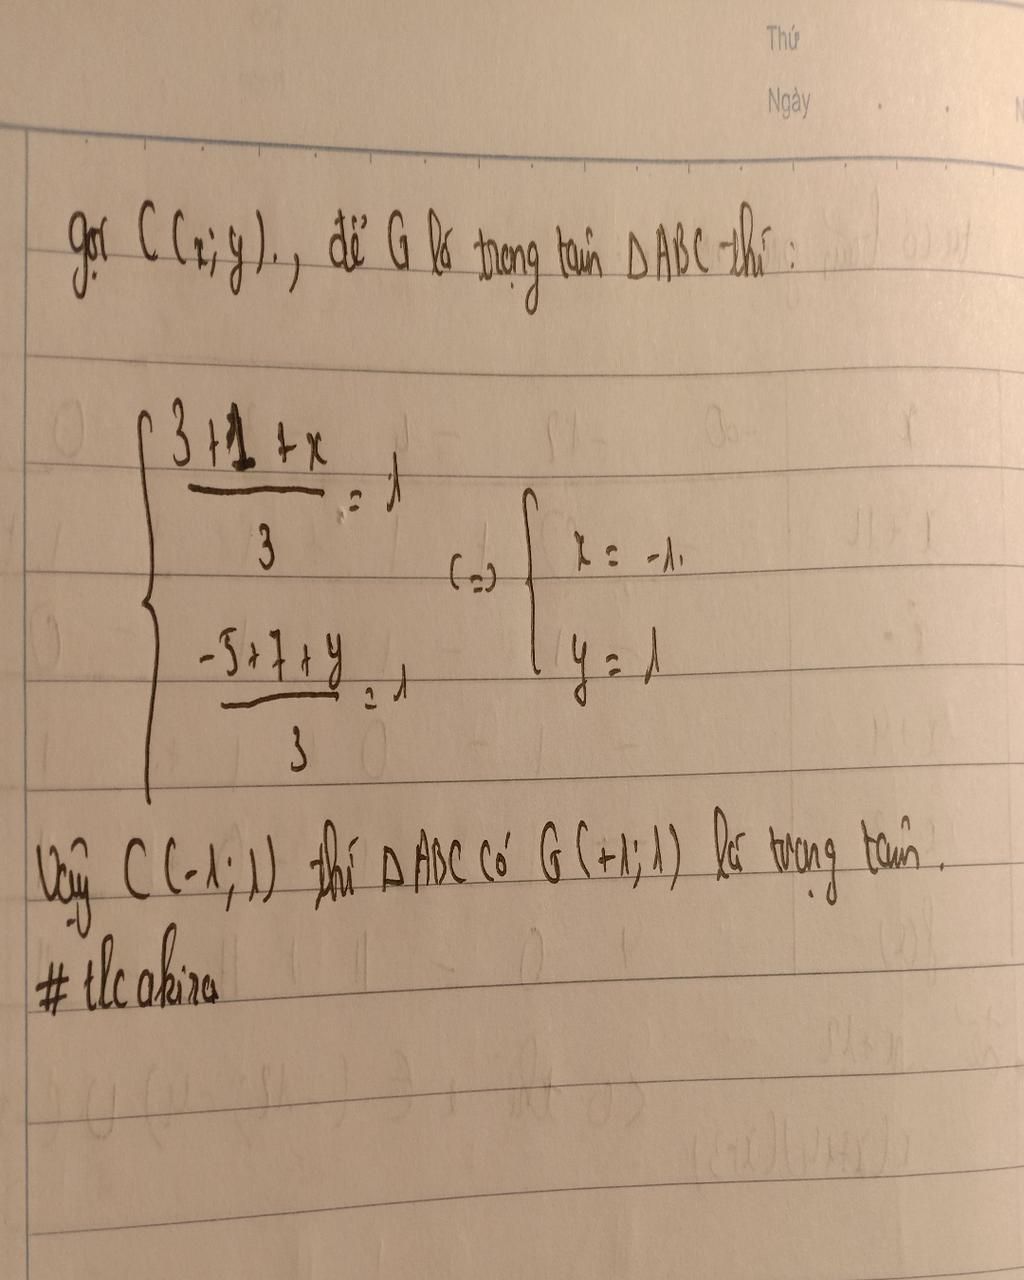 Thứ
Ngày
gọi C (x; y)., để G là trọng tâm Δ ABC thì:
3 + 1 + x
= 1
3
(=)
x = -1.
-5 + 7 + y
= 1
y = 1
3
Vậy C (-1; 1) thì Δ ABC có G (+1; 1) là trọng tâm.
# tlc akira